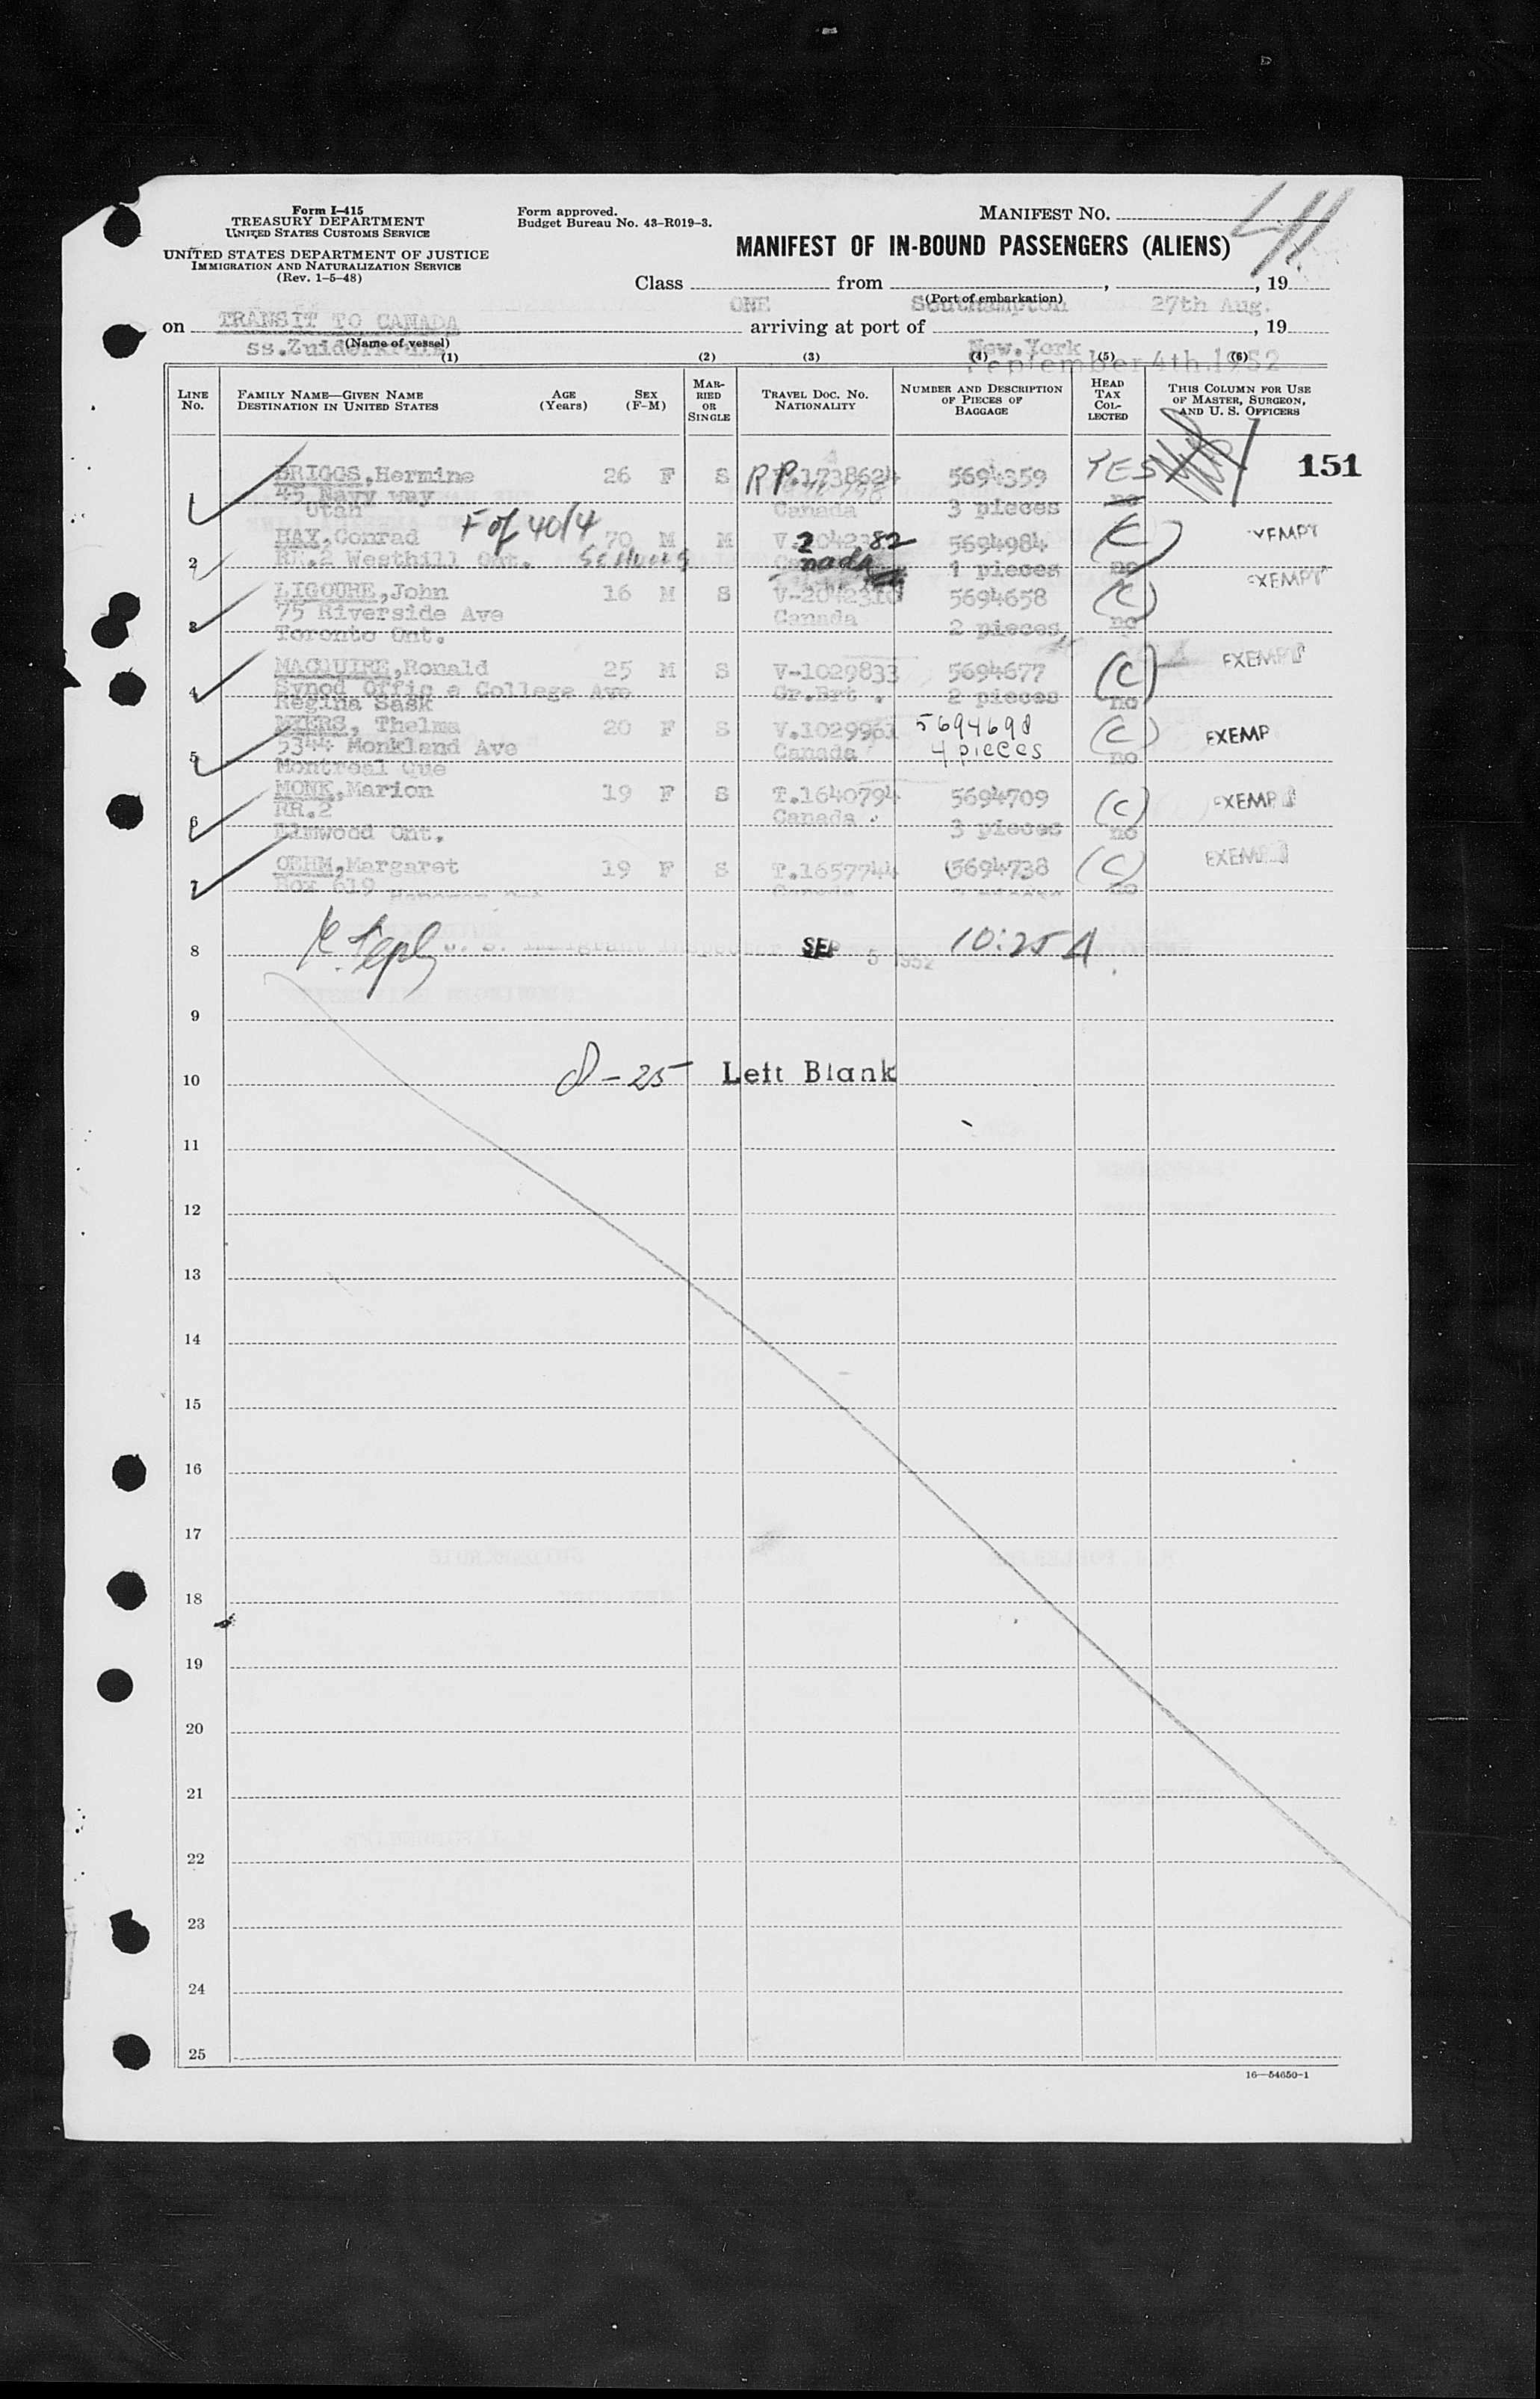 Form I-415
TREASURY DEPARTMENT
UNITED STATES CUSTOMS SERVICE
UNITED STATES DEPARTMENT OF JUSTICE
IMMIGRATION AND NATURALIZATION SERVICE
(Rev. 1-5-48)
Form approved.
Budget Bureau No. 43-R019-3.
MANIFEST NO.
MANIFEST OF IN-BOUND PASSENGERS (ALIENS)
Class ONE from Southampton, 27th Aug., 19
(Port of embarkation)
on TRANSIT TO CANADA arriving at port of New.York, 19
(Name of vessel)
September 4th.1952
(1) (2) (3) (4) (5) (6)
LINE No. FAMILY NAME—GIVEN NAME DESTINATION IN UNITED STATES AGE (Years) SEX (F-M) MARRIED OR SINGLE TRAVEL DOC. NO. NATIONALITY NUMBER AND DESCRIPTION OF PIECES OF BAGGAGE HEAD TAX COLLECTED THIS COLUMN FOR USE OF MASTER, SURGEON, AND U. S. OFFICERS
151
1 BRIGGS,Hermine 26 F S RP.1738624 5694359 YES
45 Navy way Canada 3 pieces no
Utah
2 HAY,Conrad F of 40/4 70 M M 5694984 (C) EXEMPT
RR.2 Westhill Ont. 1 pieces no
3 LIGOURE,John 16 M S 5694658 (C) EXEMPT
75 Riverside Ave Canada 2 pieces no
Toronto Ont.
4 MACQUIRE,Ronald 25 M S V-1029833 5694677 (C) EXEMPT
Synod Offic e College Ave Gr.Brt . 2 pieces no
Regina Sask
5 MYERS, Thelma 20 F S V.1029961 5694698 (C) EXEMP
5344 Monkland Ave Canada 4 pieces no
Montreal Que
6 MONK,Marion 19 F S T.1640794 5694709 (C) EXEMP
RR.2 Canada. 3 pieces no
Linwood Ont.
7 OEHM,Margaret 19 F S T.1657744 (5694738 (C) EXEMP
Box 619 Hanover Ont Canada no
8 U. S. Immigrant Inspector SEP 5 1952 10:25 A
9
10 8-25 Left Blank
11
12
13
14
15
16
17
18
19
20
21
22
23
24
25
16—54650-1